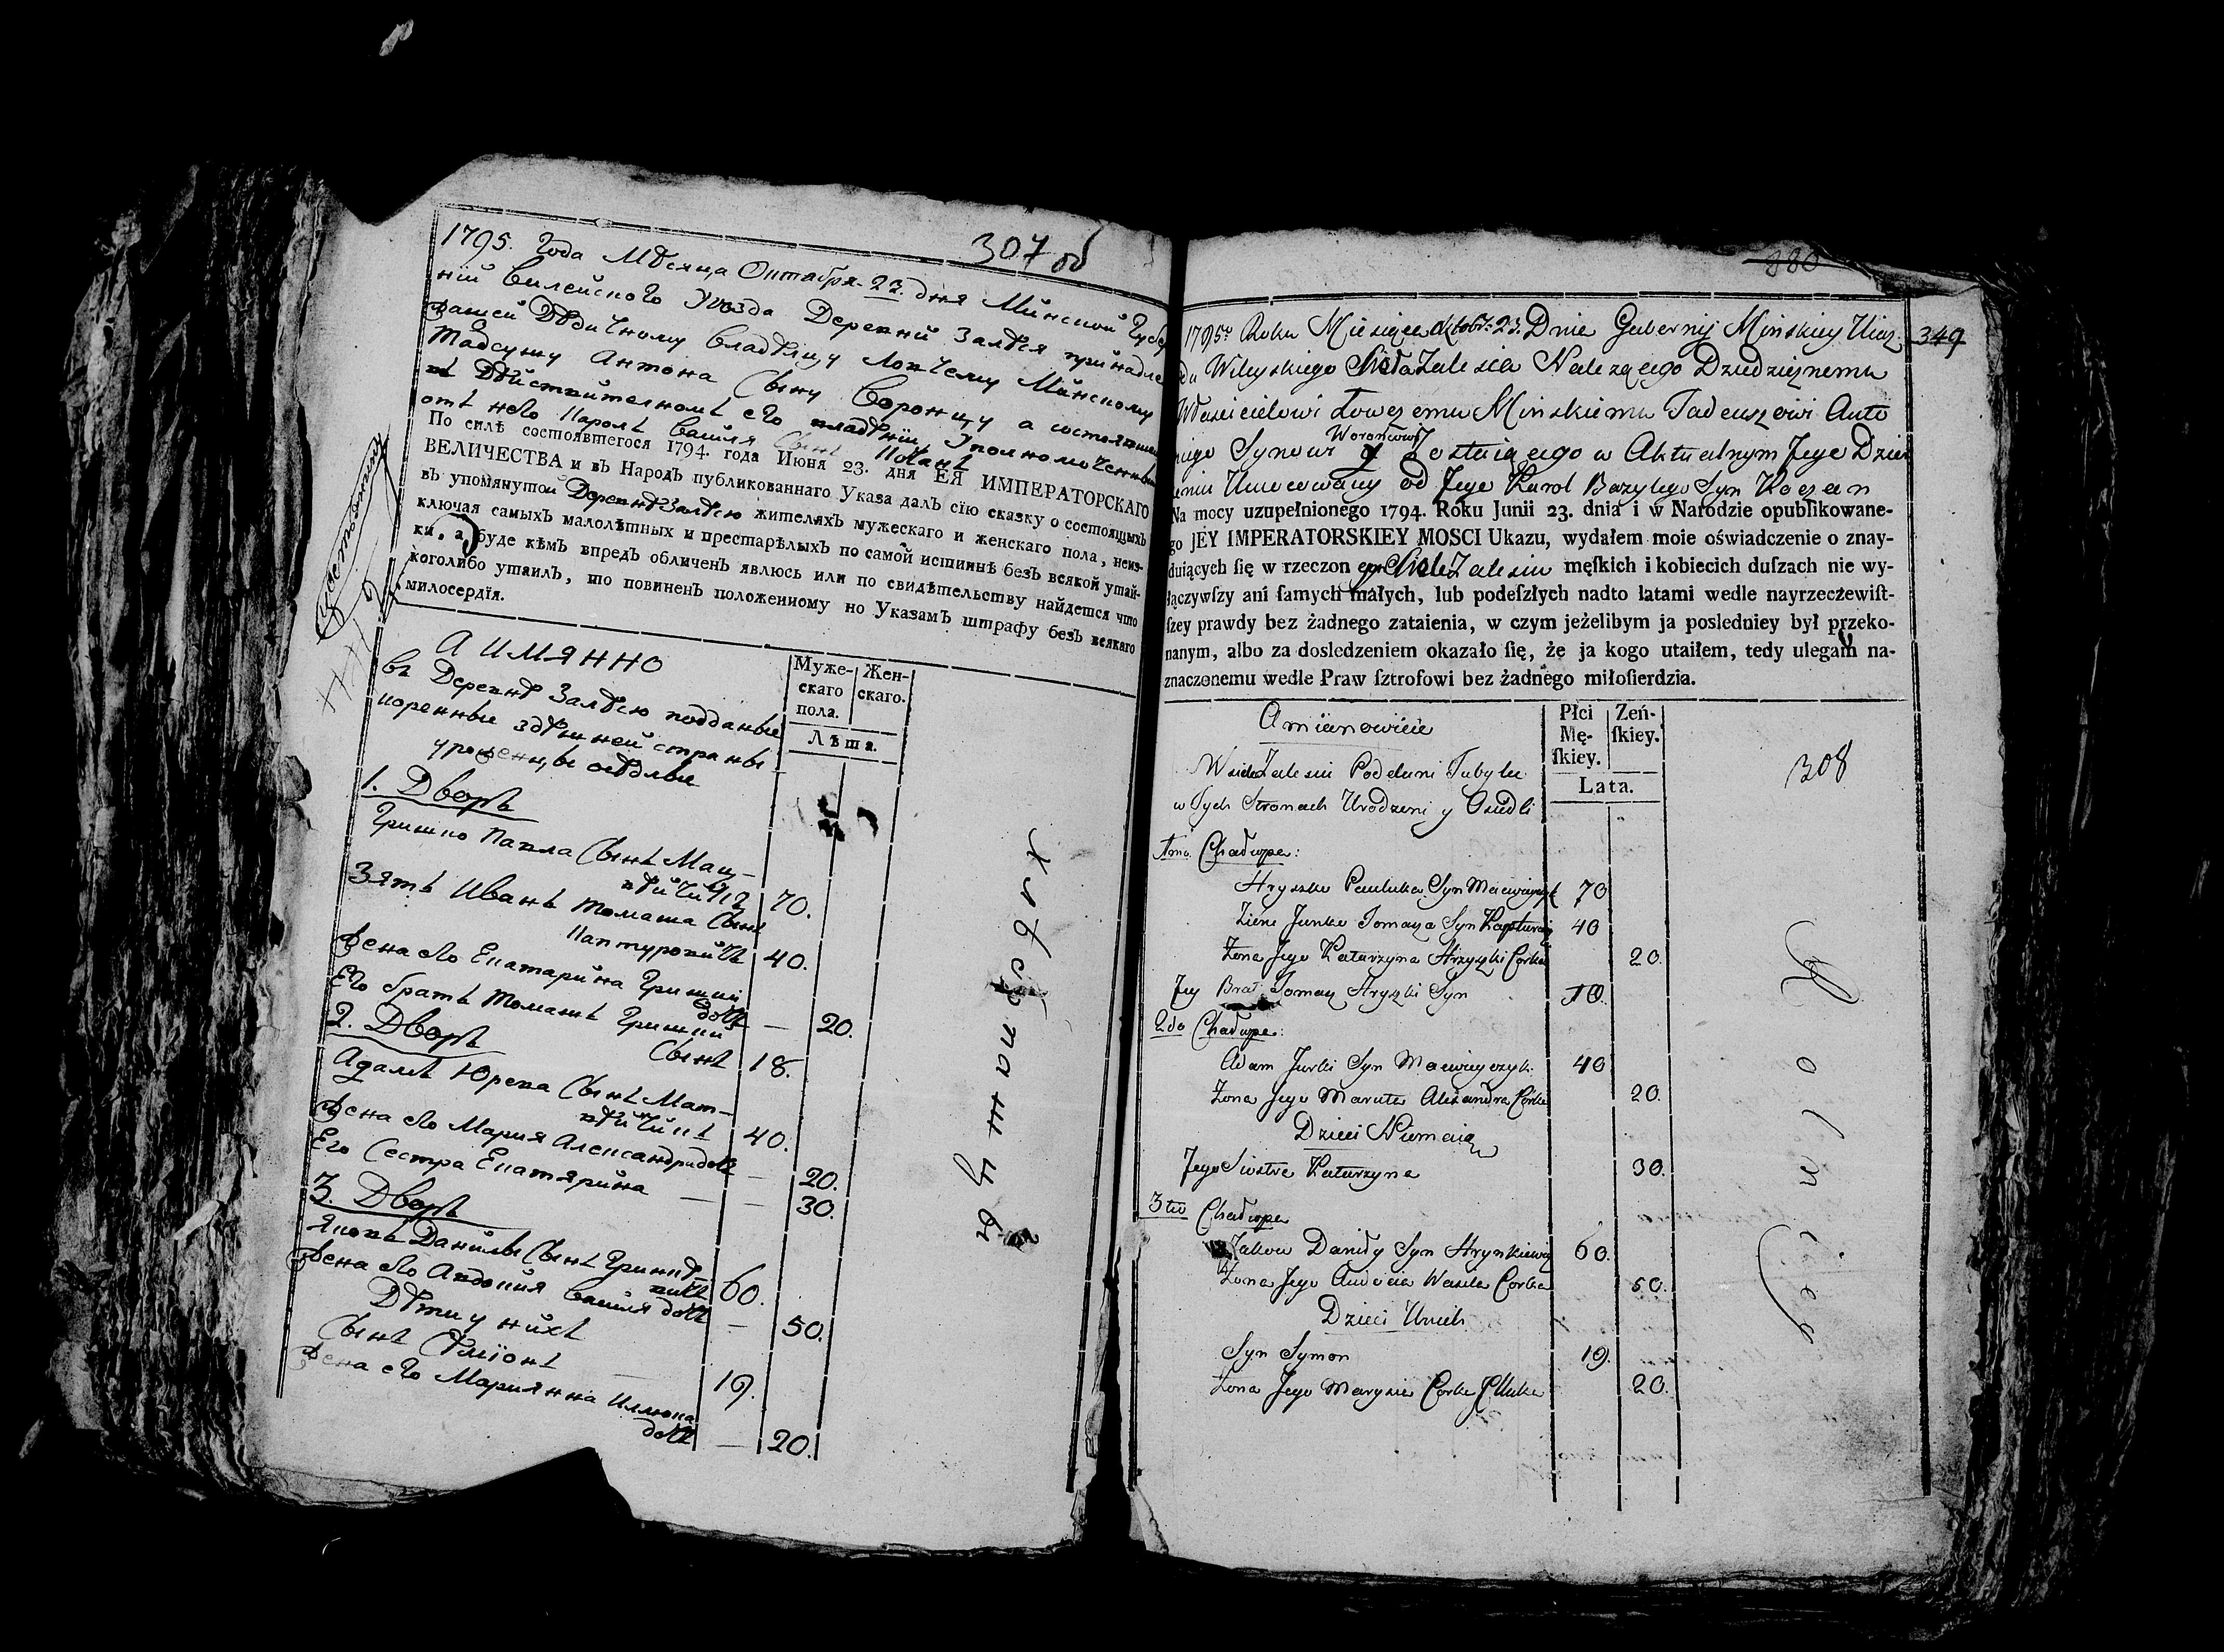 307 об
1795. Года Мѣсяца Октября 23. дня Минской Губер
нiй Вилейского Уѣзда Деревнй Залѣся принадле
жащей Дѣдичному Владѣлцу Ловчему Минскому
Тадеушу Антона Сыну Воронцу а состоящей
въ Дѣйствителномъ его владѣнiи, Уполномоченный
отъ него Кароль Василя Сынъ Коҷанъ
По силѣ состоявшегося 1794. года Июня 23. дня ЕЯ ИМПЕРАТОРСКАГО
ВЕЛИЧЕСТВА и въ Народъ публикованнаго Указа далъ сїю сказку о состоящихъ
въ упомянутой Деревнѣ Залѣсю жителяхъ мужескаго и женскаго пола, неиз-
ключая самыхъ малолѣтныхъ и престарѣлыхъ по самой истиннѣ безъ всякой утай-
ки, а буде кѣмъ впредь обличенъ явлюсь или по свидѣтельству найдется что
коголибо утаилъ, то повиненъ положенному по Указамъ штрафу безъ всякаго
милосердїя.
А имянно
Муже-
скаго
пола.
Жен-
скаго.
Лѣта.
въ Деревнѣ Залѣсю подданые
коренные здѣшней страны
уроженцы осѣдлые
1. Дворъ
Гришко Павла Сынъ Мац-
вѣйчикъ 70.
Зять Иванъ Томаша Сынъ
Каптуровичъ 40.
Жена его Екатарина Гришки
дочь — 20.
Его братъ Томашъ Гришки
Сынъ 18.
2. Дворъ
Адамъ Юрека Сынъ Мат-
вѣйчикъ 40.
Жена его Мария Александра дочь — 20.
Его Сестра Екатярина — 30.
3. Дворъ
Яковъ Данилы Сынъ Гринке-
вичъ 60.
Жена его Авдокия Василя дочь — 50.
Дѣти у нихъ
Сынъ Сѣмiонъ 19.
Жена его Мариянна Иллюка
дочь — 20.
380
349
1795º Roku Miesiąca Oktobr: 23. Dnia Gubernij Minskiey Uiaz
du Wileyskiego Sioła Zalesia Należącego Dziedzicznemu
Własicielowi Łowczemu Minskiemu Tadeuszowi Anto
niego Synowi Worońcowi y zostaiącego w Aktualnym Jego Dzier
żeniu Umocowany od Jego Karol Bazylego Syn Koczan
Na mocy uzupełnionego 1794. Roku Junii 23. dnia i w Narodzie opublikowane-
go JEY IMPERATORSKIEY MOSCI Ukazu, wydałem moie oświadczenie o znay-
duiących ſię w rzeczon ym Siole Zalesiu męſkich i kobiecich duſzach nie wy-
łączywſzy ani ſamych małych, lub podeſzłych nadto latami wedle nayrzeczewiſt-
ſzey prawdy bez żadnego zataienia, w czym jeżelibym ja poslednieyy był przeko-
nanym, albo za dosledzeniem okazało ſię, że ja kogo utaiłem, tedy ulegam na-
znaczonemu wedle Praw ſztrofowi bez żadnego miłoſierdzia.
Amianowicie
Płci
Mę-
ſkiey.
Zeń-
ſkiey.
Lata.
308
W siele Zalesiu Poddani Tubyle
w Tych Stronach Urodzeni y Osiedli
1mo. Chałupa:
Hryszko Pauluka Syn Maciwieyczyk 70
Zienc Janko Tomasza Syn Kapturowicz 40
Zona Jego Katarzyna Hryszki Corka 20.
Jey Brat Tomasz Hryszki Syn 18.
2do Chałupa:
Adam Jurki Syn Maciwieyczyk 40
Zona Jego Maruta Alexandra Corka 20.
Dzieci Niemaią
Jego Siostra Katarzyna 30.
3tio Chałupa
Jakow Daniły Syn Hrynkiewicz 60.
Zona Jego Audocia Wasila Corka 50.
Dzieci Unich
Syn Symon 19.
Zona Jego Marysia Corka Illuka 20.